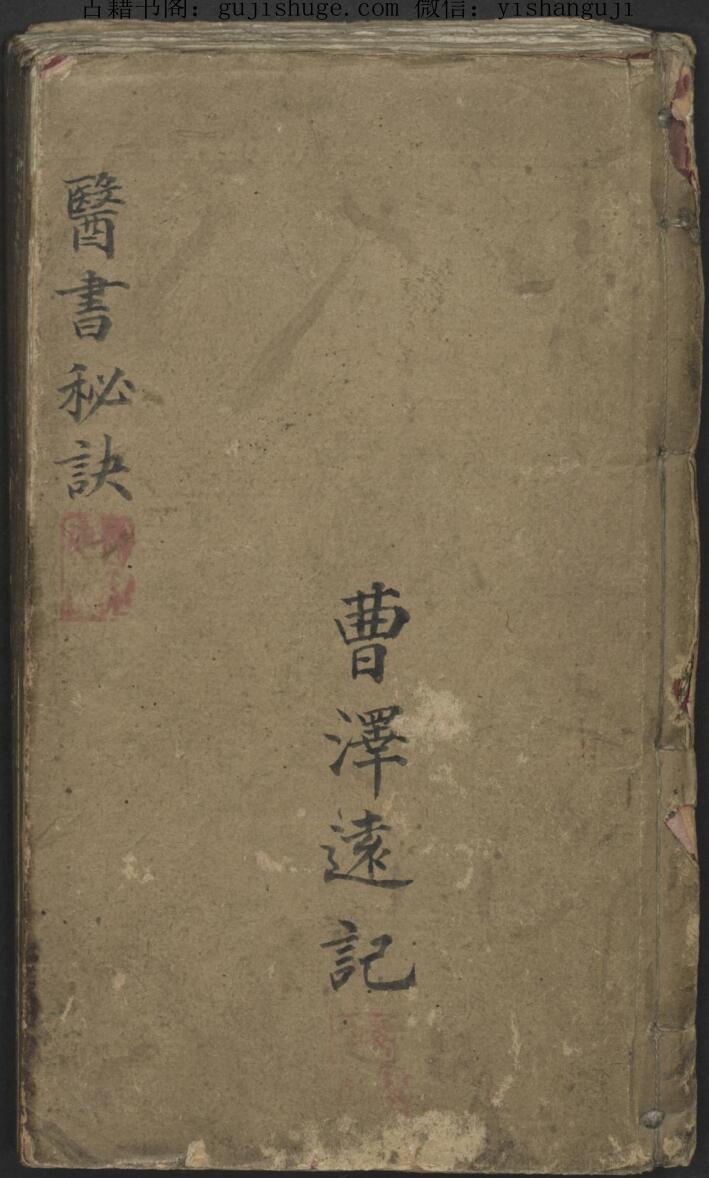 古籍书阁：gujishuge.com 微信：yishanguji
醫書秘訣
曹澤遠記